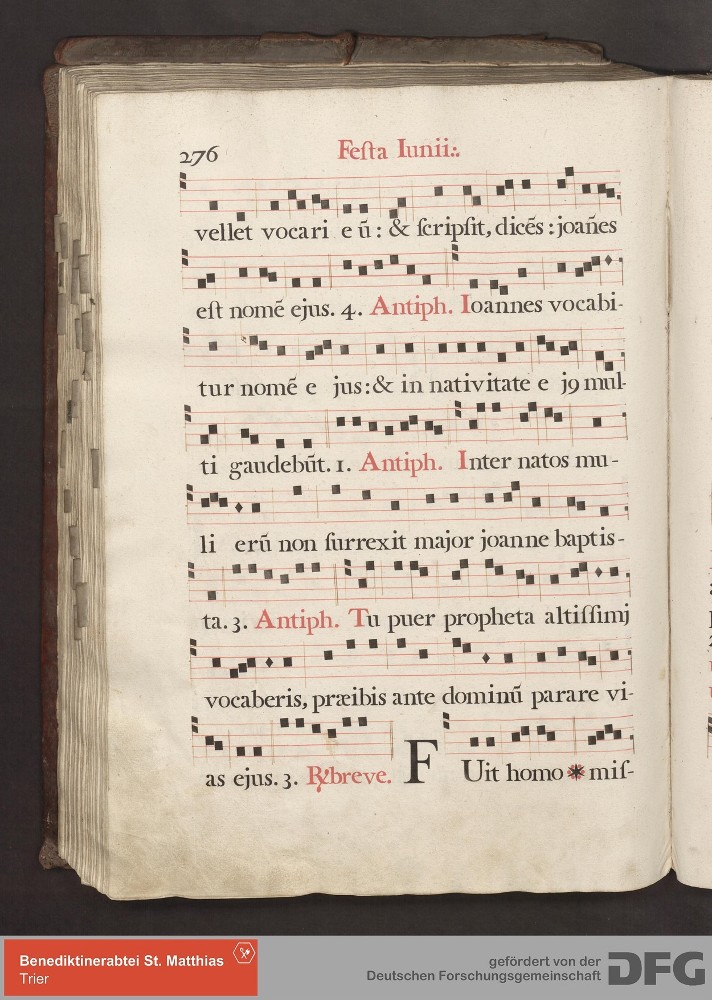 276 Festa Iunii:.
vellet vocari e ū : & ſcripſit, dicēs : joān̄es
eſt nomē ejus. 4. Antiph. Ioannes vocabi-
tur nomē e jus:& in nativitate e j9 mul-
ti gaudebūt. 1. Antiph. Inter natos mu-
li erū non ſurrexit major joanne baptis-
ta. 3. Antiph. Tu puer propheta altiſſimj
vocaberis, præibis ante dominū parare vi-
as ejus. 3. R℣breve. F Uit homo * miſ-
Benediktinerabtei St. Matthias
Trier
gefördert von der
Deutschen Forschungsgemeinschaft
DFG